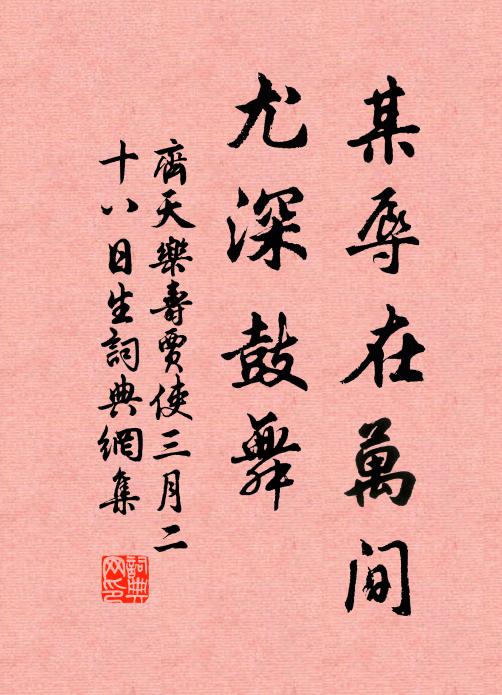 某辱在萬間
尤深鼓舞
齊天樂壽賈使三月二
十八日生詞典網集
詞典网印